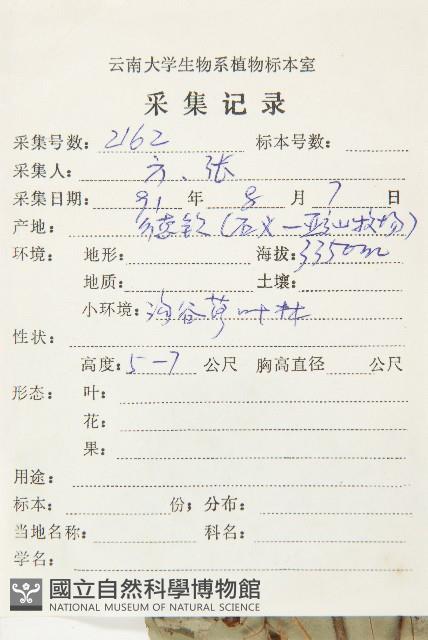 云南大学生物系植物标本室
采集记录
采集号数: 2162 标本号数:
采集人: 方、张
采集日期: 91 年 8 月 7 日
产地: 德钦(石义—亚山牧场)
环境: 地形: 海拔: 3350m
地质: 土壤:
小环境: 沟谷 叶林
性状:
高度: 5—7 公尺 胸高直径 公尺
形态: 叶:
花:
果:
用途:
标本: 份; 分布:
当地名称: 科名:
学名:
國立自然科學博物館
NATIONAL MUSEUM OF NATURAL SCIENCE